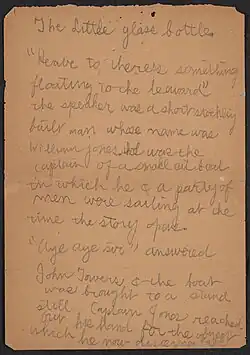 The Little glass bottle
"Heave to there's something
floating to the leeward"
the speaker was a short stockily
built man whose name was
William Jones. he was the
captain of a small cat boat
in which he & a party of
men were sailing at the
time the story opens.
"Aye aye sir" answered
John Towers & the boat
was brought to a stand
still Captain Jones reached
out his hand for the object
which he now discerned